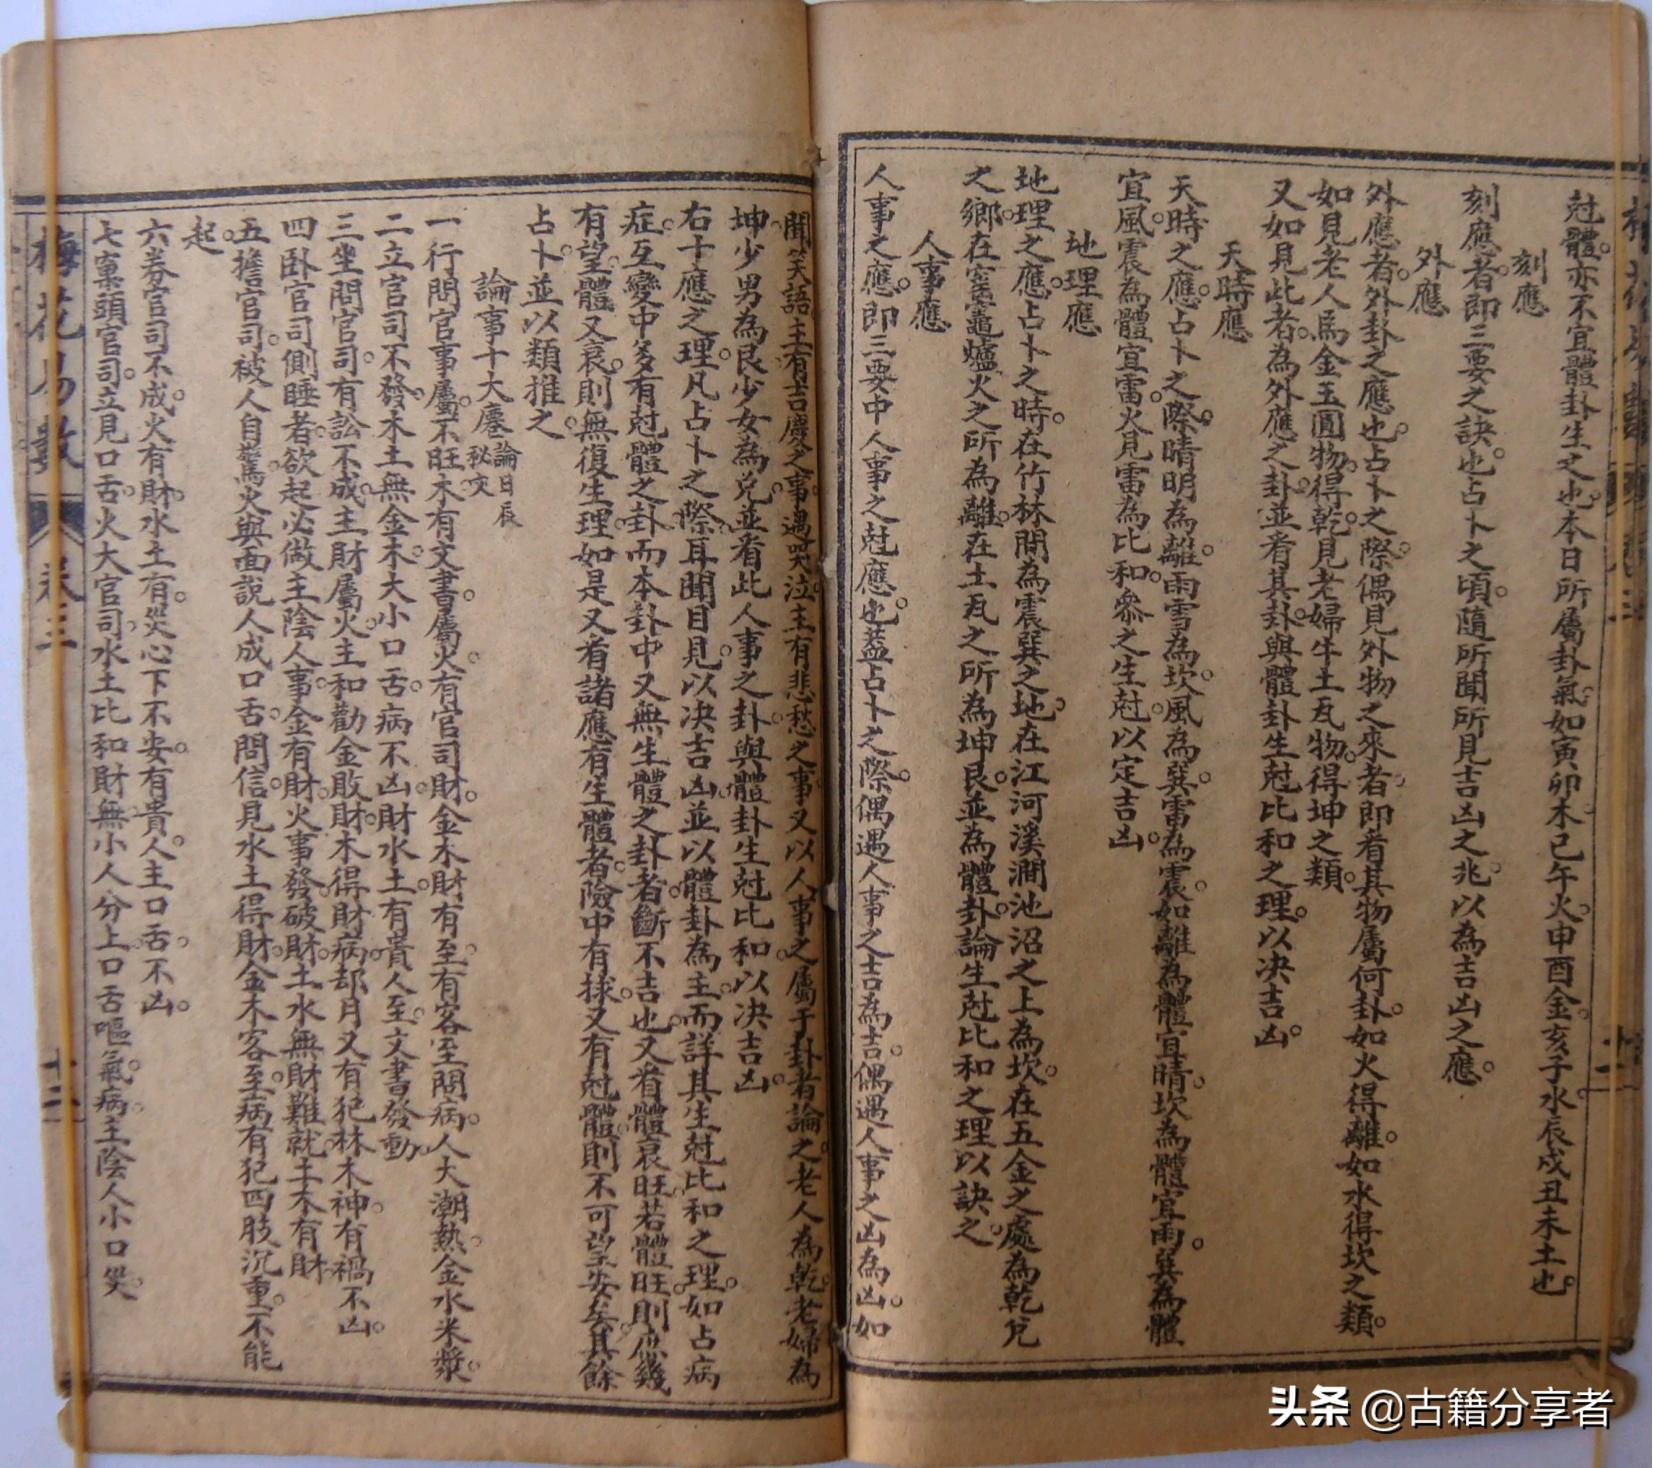 尅體亦不宜體卦生之也本日所屬卦氣如寅卯木巳午火申酉金亥子水辰戌丑未土也
刻應
刻應者即三要之訣也占卜之頃隨所聞所見吉凶之兆以為吉凶之應
外應
外應者外卦之應也占卜之際偶見外物之來者即看其物屬何卦如火得離如水得坎之類
如見老人馬金玉圓物得乾見老婦牛土瓦物得坤之類
又如見此者為外應之卦並看其卦與體卦生尅比和之理以决吉凶
天時應
天時之應占卜之際晴明為離雨雪為坎風為巽雷為震如離為體宜晴坎為體宜雨巽為體
宜風震為體宜雷火見雷為比和參之生尅以定吉凶
地理應
地理之應占卜之時在竹林間為震巽之地在江河溪澗池沼之上為坎在五金之處為乾兌
之鄉在窰竈爐火之所為離在土瓦之所為坤艮並為體卦論生尅比和之理以訣之
人事應
人事之應即三要中人事之尅應也蓋占卜之際偶遇人事之吉為吉偶遇人事之凶為凶如
聞笑語主有吉慶之事遇哭泣主有悲愁之事又以人事之屬于卦者論之老人為乾老婦為
坤少男為艮少女為兌並看此人事之卦與體卦生尅比和以决吉凶
右十應之理凡占卜之際耳聞目見以决吉凶並以體卦為主而詳其生尅比和之理如占病
症互變中多有尅體之卦而本卦中又無生體之卦者斷不吉也又看體衰旺若體旺則庶幾
有望體又衰則無復生理如是又看諸應有生體者險中有捄又有尅體則不可望安矣其餘
占卜並以類推之
論事十大應 論日辰秘文
一行問官事屬不旺木有文書屬火有官司財金木財有至有客至問病人大潮熱金水米漿
二立官司不發木土無金木大小口舌病不凶財水土有貴人至文書發動
三坐問官司有訟不成主財屬火主和勸金敗財木得財病却月又有犯林木神有禍不凶
四卧官司側睡者欲起必做主陰人事金有財火事發破財土水無財難就土木有財
五擔官司被人自驚火與面説人成口舌問信見水土得財金木客至病有犯四肢沉重不能
起
六券官司不成火有財水土有災心下不安有貴人主口舌不凶
七窠頭官司立見口舌火大官司水土比和財無小人分上口舌嘔氣病主陰人小口災
梅花易數
卷三
十二
头条 @古籍分享者